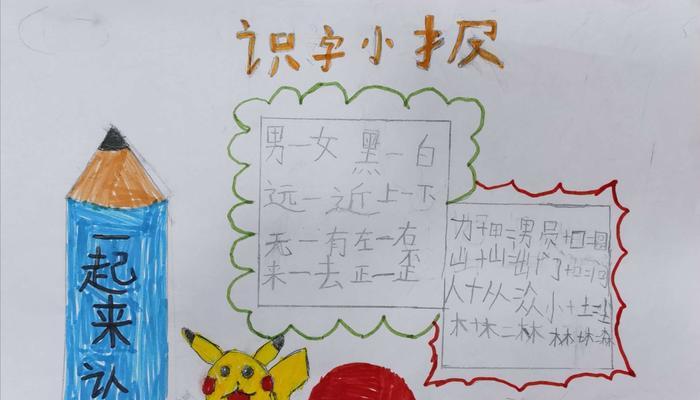 识字小报
一起来认
男—女 黑—白
远—近 上—下
无—有 左—右
来—去 正—歪
力+田=男 员+口=圆
山+山=出 门+口=问
人+从=众 小+土=尘
木+木=林 林+木=森